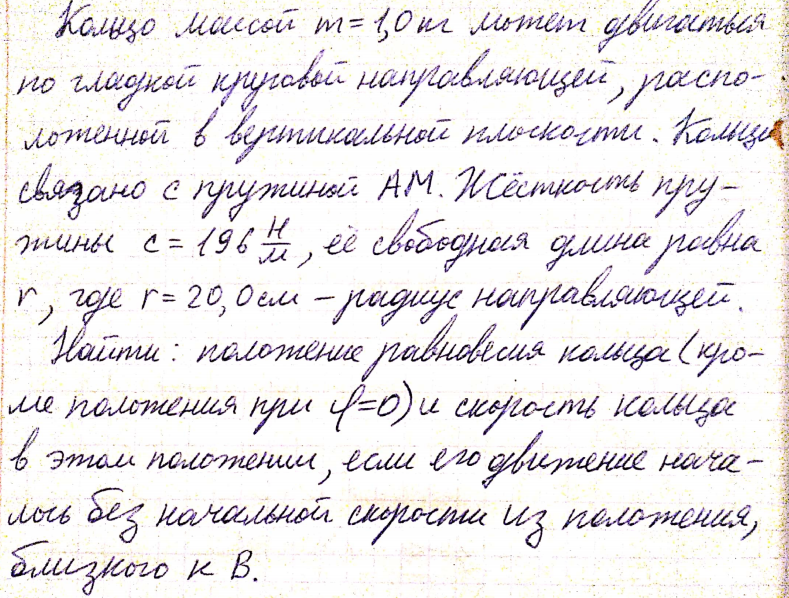 Кольцо массой m=1,0 кг может двигаться
по гладкой круговой направляющей, распо-
ложенной в вертикальной плоскости. Кольцо
связано с пружиной AM. Жёсткость пру-
жины c = 196 Н/м, её свободная длина равна
r, где r = 20,0 см – радиус направляющей.
Найти: положение равновесия кольца (кро-
ме положения при φ=0) и скорость кольца
в этом положении, если его движение нача-
лось без начальной скорости из положения,
близкого к B.